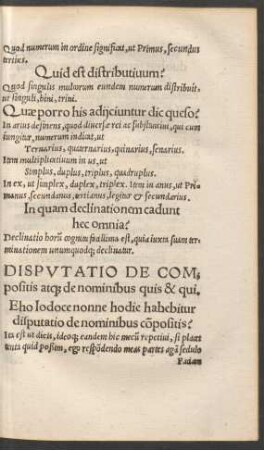 Quod numerum in ordine significat, ut Primus, secundus
tertius.
Quid est distributiuum?
Quod singulis multorum eundem numerum distribuit,
ut singuli, bini, trini.
Quæ porro his adijciuntur dic quęso?
In arius desinens, quod diuersæ rei ac substantiis, qui cum
iungitur numerum indicat, ut
Ternarius, quaternarius, quinarius, senarius.
Item multiplextiuum in us. ut
Simplus, duplus, triplus, quadruplus.
In ex, ut simplex, duplex, triplex. Item in anus, ut Pri
manus, secundanus, tertianus, legitur & secundarius.
In quam declinationem cadunt
hęc omnia?
Declinatio horũ cognitu facillima est, quia iuxta suam ter
minationem unumquodq; declinatur.
DISPVTATIO DE COM,
positis atq; de nominibus quis & qui.
Eho Iodoce nonne hodie habebitur
disputatio de nominibus cõpositis?
Ita est ut dicis, ideoq; eandem hic mecũ repetiui, si place
quid possem, ego respõdendo meas partes agã sedulo